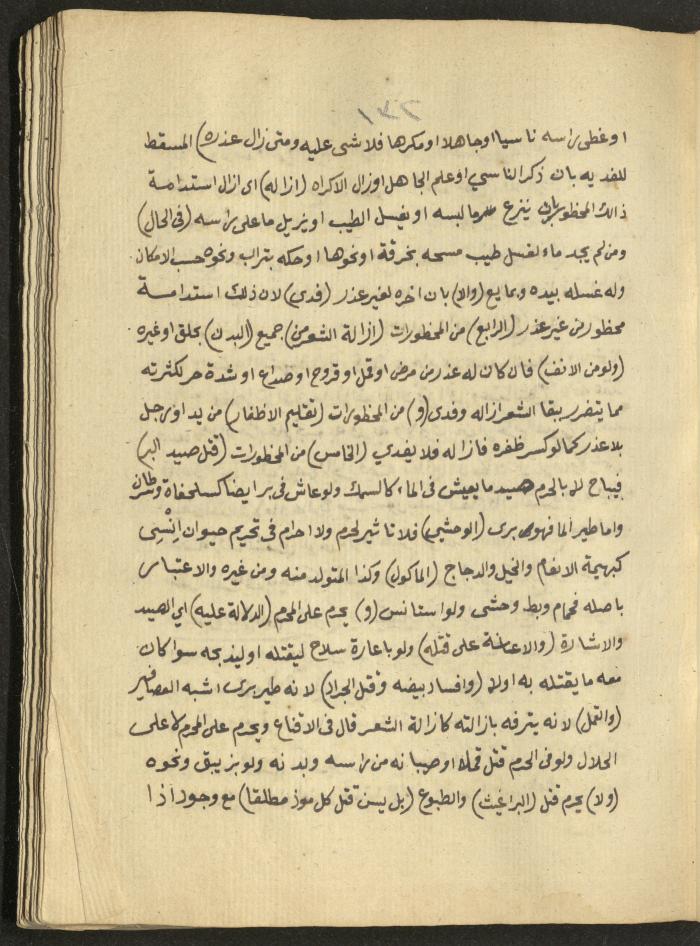 ٢٣١
او غطى راسه ناسيا او جاهلا او مكرها فلا شى عليه ومتى زال عذره) المسقط
للفديه بان ذكر الناسي او علم الجاهل او زال الاكراه (ازاله) اى ازال استدامة
ذالك المحظور بان ينزع ما لبسه او يغسل الطيب او يزيل ما على راسه (فى الحال)
ومن لم يجد ماء لغسل طيب مسحه بخرقة او نحوها او حكه بتراب ونحوه حسب الامكان
وله غسله بيده وبمايع (والا) بان اخره لغير عذر (فدى) لان ذلك استدامة
محظور من غير عذر (الرابع) من المحظورات (ازالة الشعر من) جميع (البدن) بحلق او غيره
(ولو من الانف) فان كان له عذر من مرض او قمل او قروح او صداع او شدة حر لكثرته
مما يتضرر ببقا الشعر ازاله وفدى (و) من المحظورات (تقليم الاظفار) من يد او رجل
بلا عذر كما لو كسر ظفره فازاله فلا يفدي (الخامس) من المحظورات (قتل صيد البر)
فيباح لا بالحرم صيد ما يعيش فى الماء كالسمك ولو عاش فى بر ايضا كسلحفاة وسرطان
واما طير الما فهو برى (الوحشي) فلا تاثير لحرم ولا احرام فى تحريم حيوان اِنْسِى
كبهيمة الانعام والخيل والدجاج (الماكول) وكذا المتولد منه ومن غيره والاعتبار
باصله فحمام وبط وحشى ولو استانس (و) يحرم على المحرم (الدلالة عليه) اي الصيد
والاشارة (والاعانة على قتله) ولو باعارة سلاح ليقتله او ليذبحه سوا كان
معه ما يقتله به اولا (وافساد بيضه وقتل الجراد) لانه طير برى اشبه العصافير
(والقمل) لانه يترفه بازالته كازالة الشعر قال فى الاقناع ويحرم على المحرم لا على
الحلال ولو فى الحرم قتل قملا او صيبانه من راسه وبدنه ولو بزيبق ونحوه
(ولا) يحرم قتل (البراغيث) والطبوع (بل يسن قتل كل موذ مطلقا) مع وجود اذا